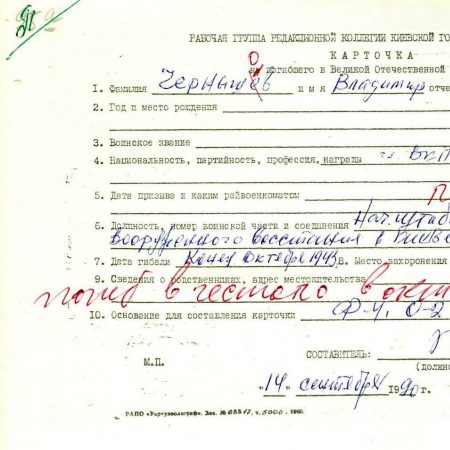 РАБОЧАЯ ГРУППА РЕДАКЦИОННОЙ КОЛЛЕГИИ КИЕВСКОЙ ГО
КАРТОЧКА
на погибшего в Великой Отечественной
1. Фамилия Чернышов имя Владимир отче
2. Год и место рождения
3. Воинское звание
4. Национальность, партийность, профессия, награды ВКП
5. Дата призыва и каким райвоенкоматом
6. Должность, номер воинской части и соединения Нач. штаба
вооруженного восстания в Киеве
7. Дата гибели Конец октября 1943 8. Место захоронения
9. Сведения о родственниках, адрес местожительства
погиб в гестапо в окт
10. Основание для составления карточки Ф-4, О-2
СОСТАВИТЕЛЬ:
М.П.
(должно
"14" сентября 1990 г.
РАПО «Укрвузполиграф». Зак. № 0331, т. 5000. 1990.